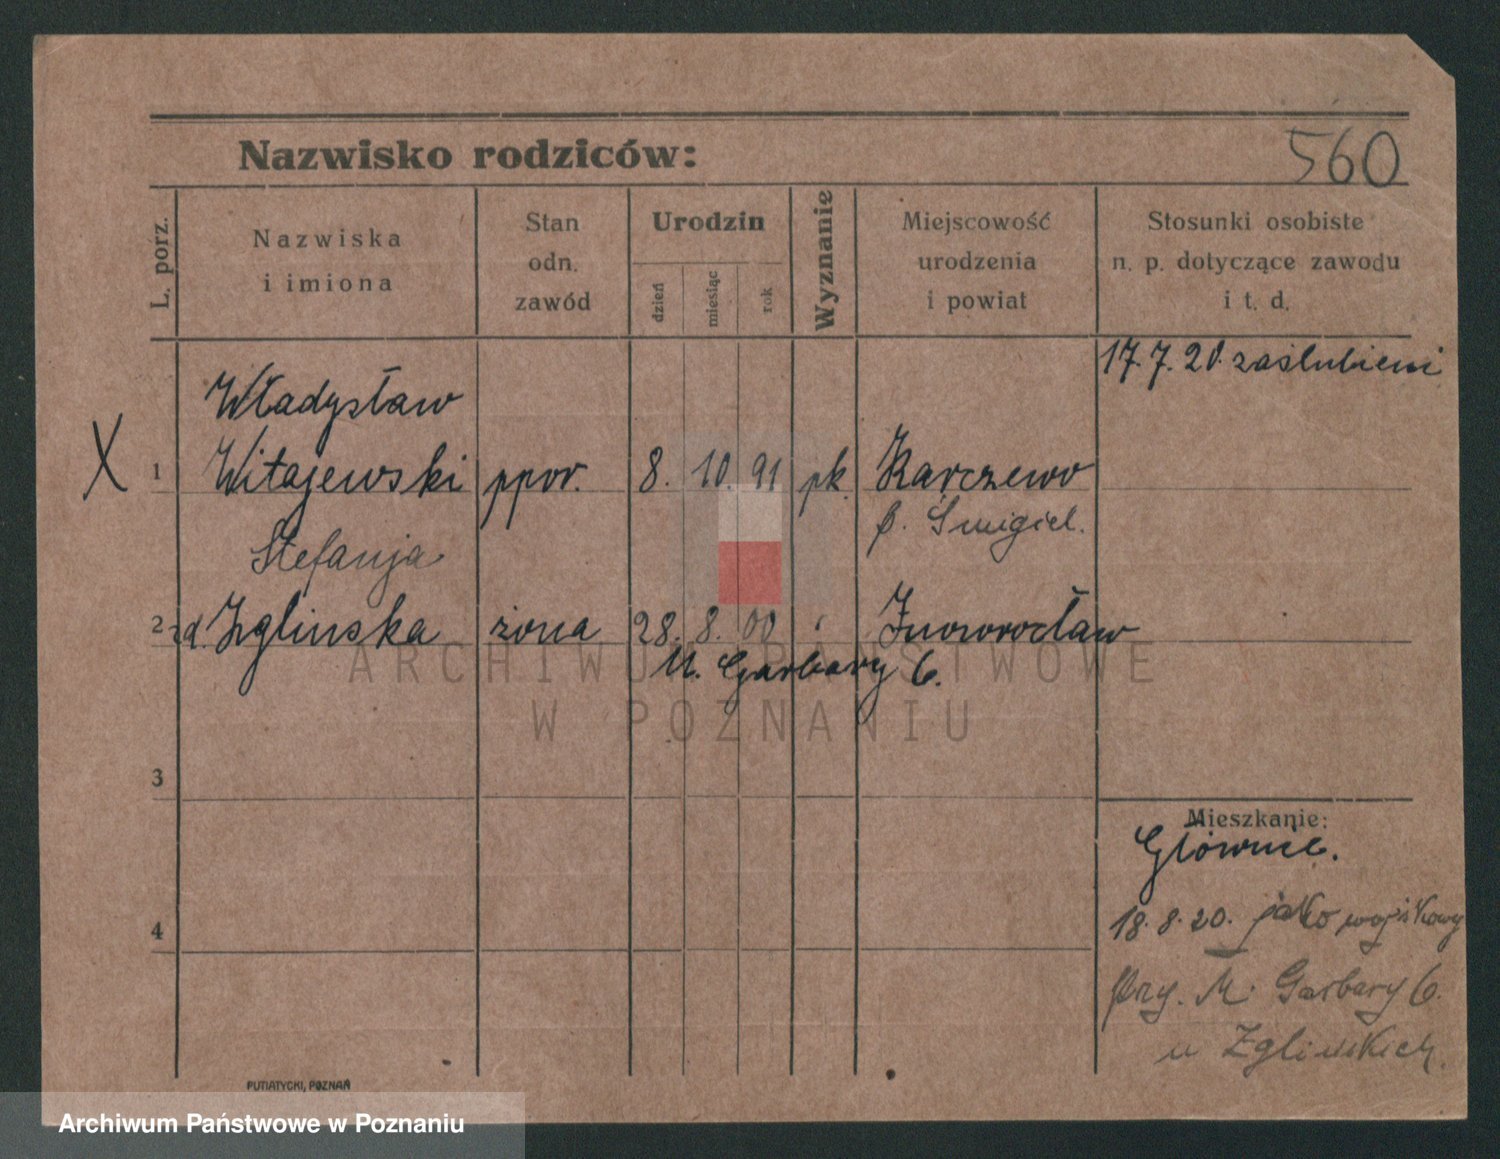 Nazwisko rodziców:
560
L. porz.
Nazwiska
i imiona
Stan
odn.
zawód
Urodzin
dzień
miesiąc
rok
Wyznanie
Miejscowość
urodzenia
i powiat
Stosunki osobiste
n. p. dotyczące zawodu
i t. d.
17.7.20. zaślubieni
Władysław
X 1 Witajewski ppor. 8. 10. 91 pk. Karczewo
p. Śmigiel.
Stefanja
2 zd. Zglinska żona 28. 8. 00 Inowrocław
M. Garbary 6.
ARCHIWUM PAŃSTWOWE
W POZNANIU
3
Mieszkanie:
Głównie.
4
18.8.20. jako wojskowy
Przy. M. Garbary 6.
u Zglinskich.
PUTIATYCKI, POZNAŃ
Archiwum Państwowe w Poznaniu